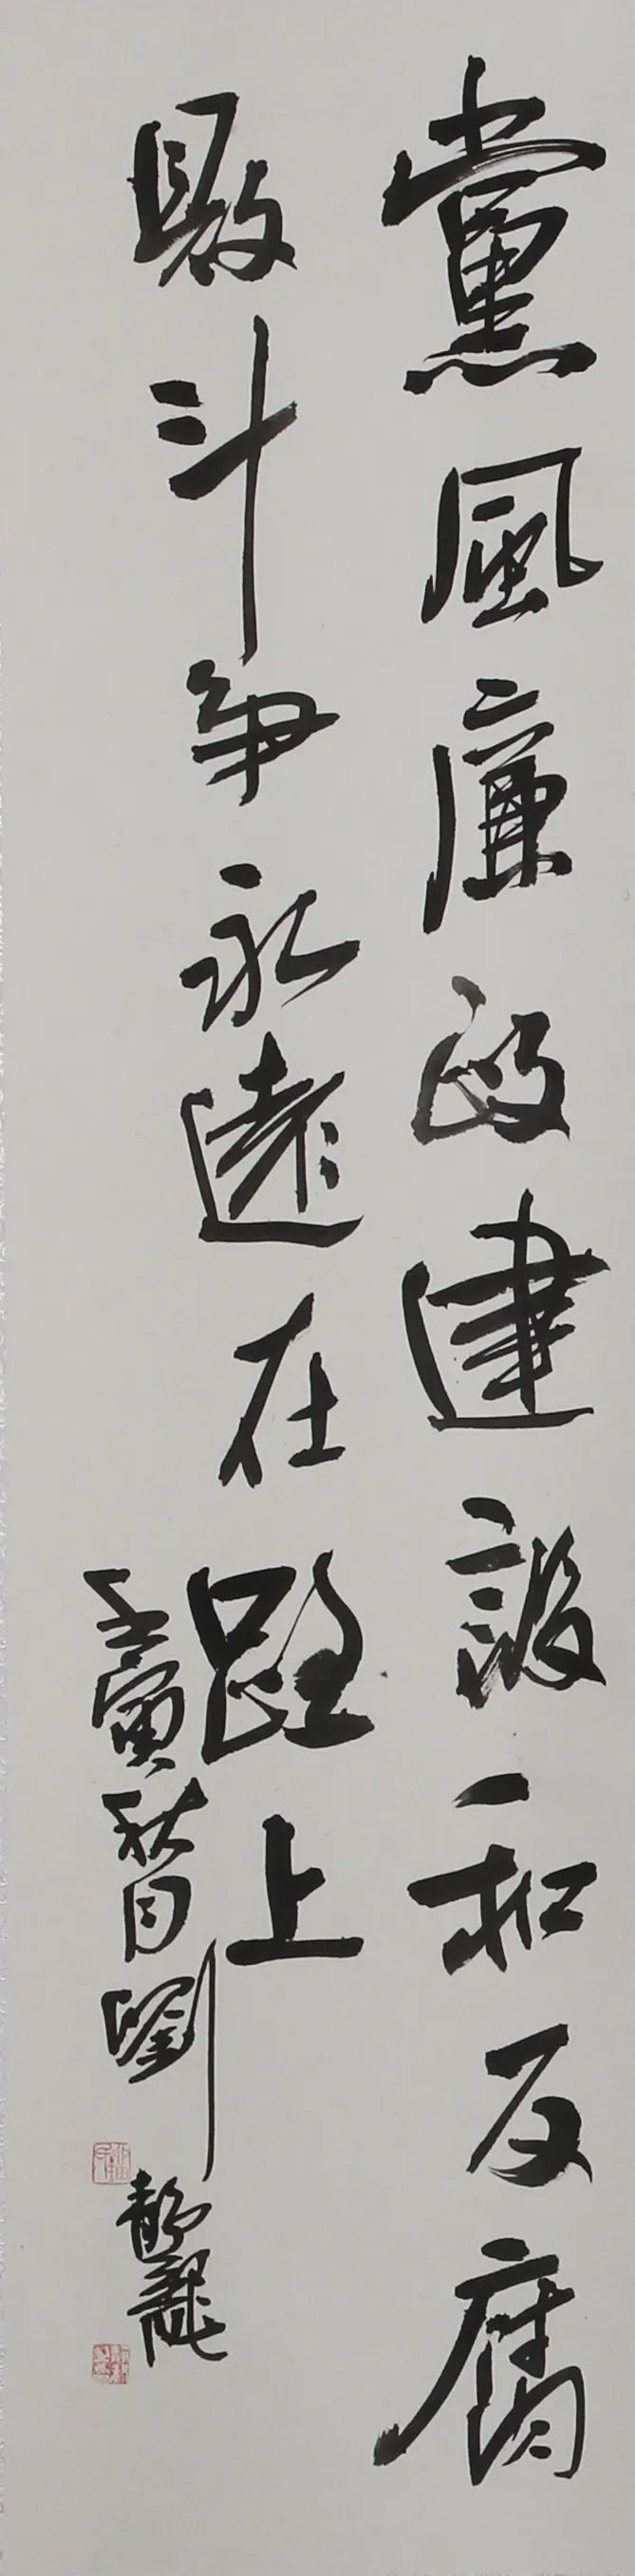 黨風廉政建設和反腐
敗斗爭永遠在路上
壬寅秋月劉靜